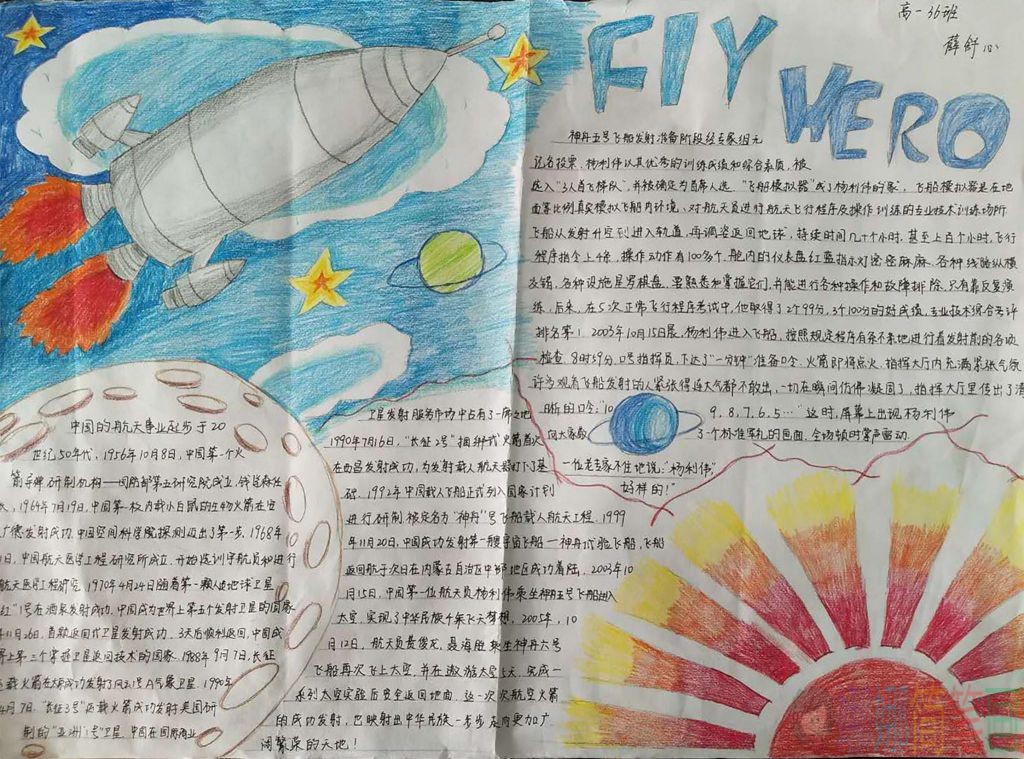 高一36班
薛舒心
FlY
HERO
神舟五号飞船发射准备阶段经专家组无
记名投票、杨利伟以其优秀的训练成绩和综合素质,被
选入"3人首飞梯队",并被确定为首席人选."飞船模拟器"成了杨利伟的"家",飞船模拟器是在地
面等比例真实模拟飞船内环境、对航天员进行航天飞行程序及操作训练的专业技术训练场所
飞船从发射升空到进入轨道,再调姿返回地球,持续时间几十个小时,甚至上百个小时,飞行
程序指令上千条,操作动作有100多个,舱内的仪表盘红蓝指示灯密密麻麻、各种线路纵横
交错,各种设施星罗棋盘,要熟悉和掌握它们,并能进行各种操作和故障排除,只有靠反复演
练,后来,在5次正常飞行程序考试中,他取得了2个99分,3个100分的好成绩,专业技术综合考评
排名第1.2003年10月15日晨,杨利伟进入飞船,按照规定程序有条不紊地进行着发射前的各项
检查.8时59分,0号指挥员,下达了"一分钟"准备口令,火箭即将点火,指挥大厅内充满紧张气氛
许多观看飞船发射的人紧张得连大气都不敢出,一切在瞬间仿佛凝固了,指挥大厅里传出了清
晰的口令:"10 9,8,7,6,5…"这时,屏幕上出现杨利伟
向大家敬 了个标准军礼的画面,全场顿时掌声雷动.
一位老专家不住地说:"杨利伟"
好样的!"
中国的航天事业起步于20
世纪50年代.1956年10月8日,中国第一个火
箭导弹研制机构——国防部第五研究院成立,钱学森任
1964年7月19日,中国第一枚内载小白鼠的生物火箭在安
广德发射成功,中国空间科学院探测迈出了第一步.1968年
1日,中国航天医学工程研究所成立,开始选训宇航员和进行
航天医学工程研究.1970年4月24日随着第一颗人造地球卫星
红"1号在酒泉发射成功,中国成为世界上第五个发射卫星的国家
年11月26日,首颗返回式卫星发射成功.3天后顺利返回,中国成
界上第三个掌握卫星返回技术的国家.1988年9月7日,长征
载火箭在太原成功发射了风云1号A气象卫星.1990年
4月7日."长征3号"运载火箭成功发射美国研
制的"亚洲1号"卫星.中国在国际商业
卫星发射服务市场中占有了一席之地
1990年7月16日,"长征2号"捆绑式火箭首次
在西昌发射成功,为发射载人航天器打下了基
础.1992年中国载人飞船正式列入国家计划
进行研制.被定名为"神舟"号飞船载人航天工程.1999
年11月20日,中国成功发射第一艘宇宙飞船—神舟试验飞船,飞船
返回舱于次日在内蒙古自治区中部地区成功着陆.2003年10
月15日,中国第一位航天员杨利伟乘坐神舟五号飞船进入
太空,实现了中华民族千年飞天梦想,2005年,10
月12日,航天员费俊龙,聂海胜乘坐神舟六号
飞船再次飞上太空,并在遨游太空5天,完成一
系列太空实验后安全返回地面,这一次次航空火箭
的成功发射,已映射出中华民族一步步走向更加广
阔繁荣的天地!